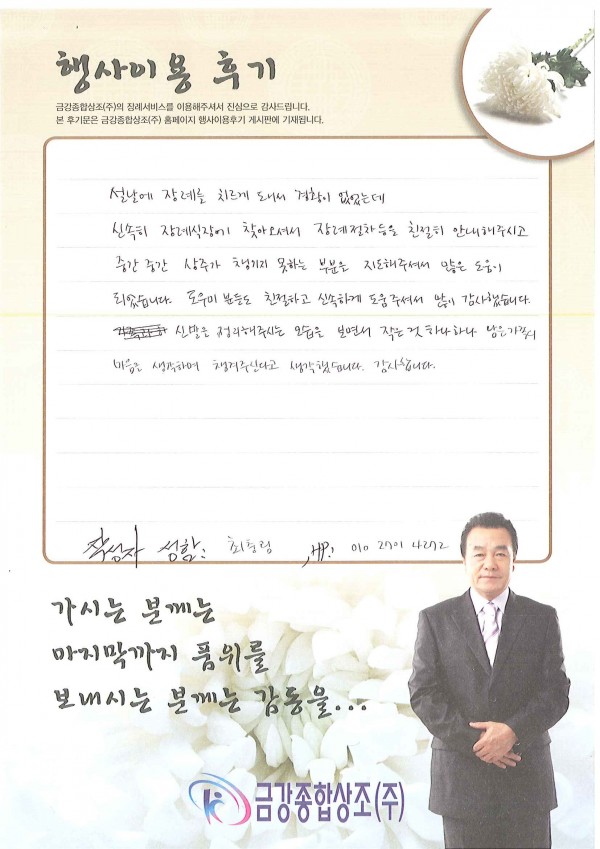 행사이용 후기
금강종합상조(주)의 장례서비스를 이용해주셔서 진심으로 감사드립니다.
본 후기문은 금강종합상조(주) 홈페이지 행사이용후기 게시판에 기재됩니다.
설날에 장례를 치르게 되어서 경황이 없었는데
신속히 장례식장에 찾아오셔서 장례절차등을 친절히 안내해주시고
중간 중간 상주가 챙기지 못하는 부분은 지도해주셔서 많은 도움이
되었습니다. 도우미 분들도 친절하고 신속하게 도움주셔서 많이 감사했습니다.
신발을 정리해주시는 모습을 보면서 작은것 하나하나 남은가족의
마음을 생각하며 챙겨주신다고 생각했습니다. 감사합니다.
작성자 성함: HP: 010 2701 4272
가시는 분께는
마지막까지 품위를
보내시는 분께는 감동을...
금강종합상조(주)